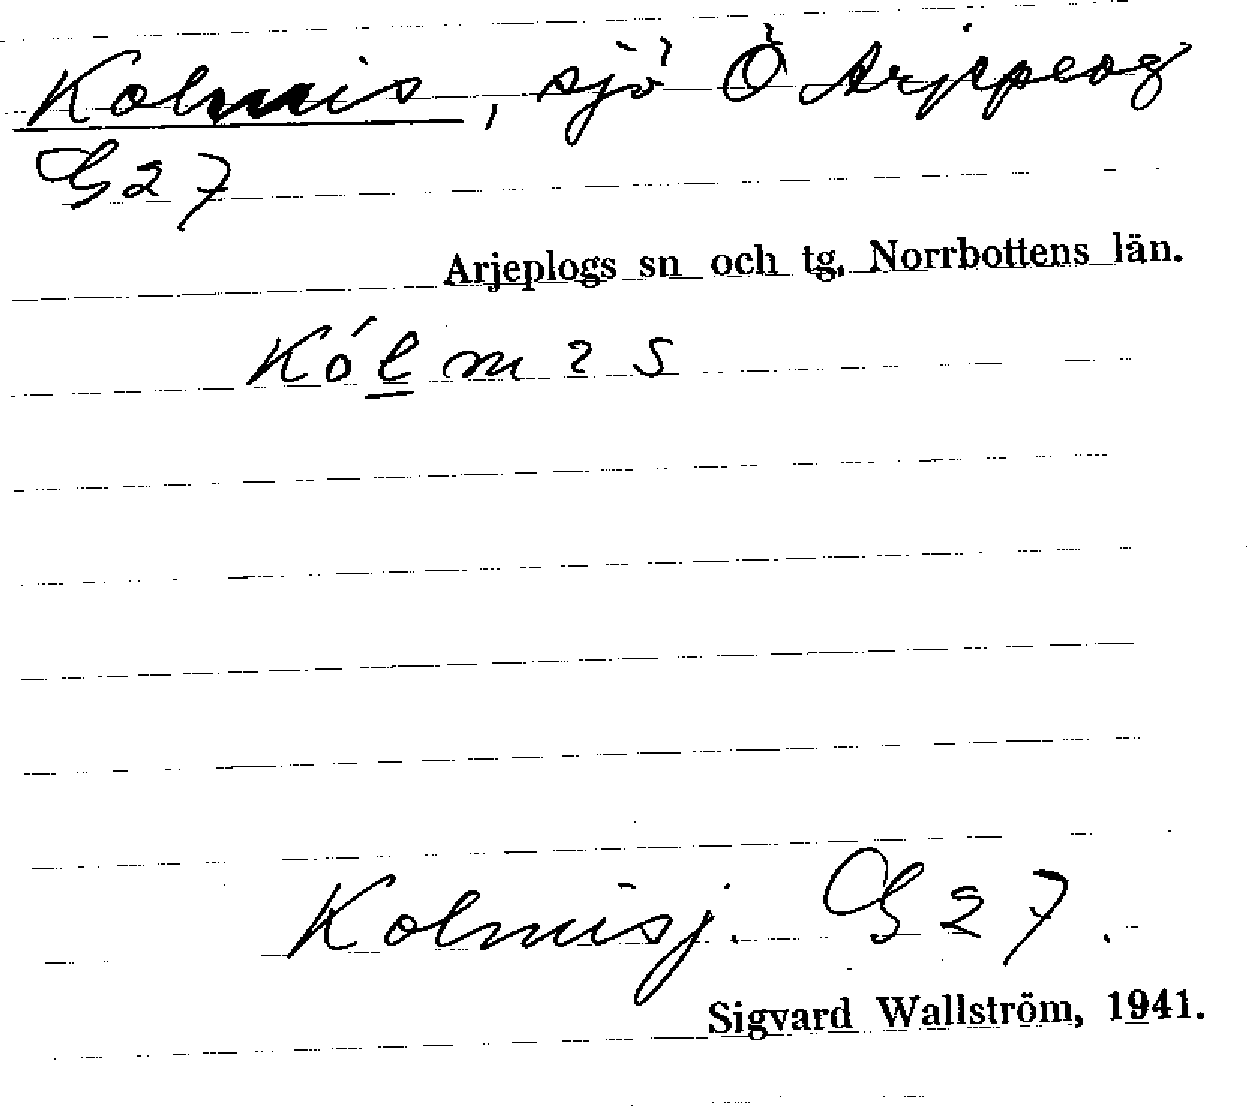 Kolmis, sjö Ö Arjeplog
G 27
Arjeplogs sn och tg, Norrbottens län.
Kólmıs
Kolmisj. G 27.
Sigvard Wallström, 1941.